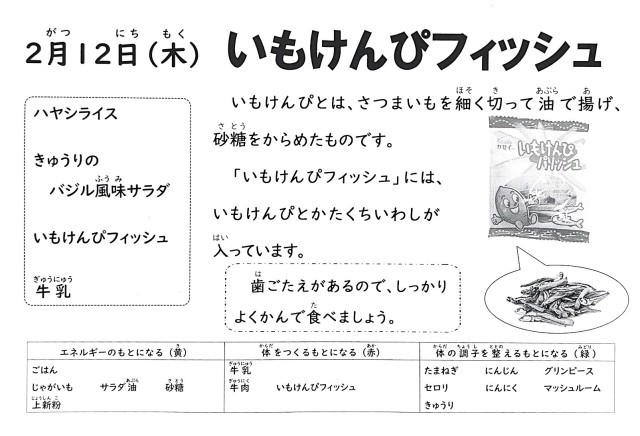 2月12日(木) いもけんぴフィッシュ
ハヤシライス
きゅうりの
バジル風味サラダ
いもけんぴフィッシュ
牛乳
いもけんぴとは、さつまいもを細く切って油で揚げ、
砂糖をからめたものです。
「いもけんぴフィッシュ」には、
いもけんぴとかたくちいわしが
入っています。
歯ごたえがあるので、しっかり
よくかんで食べましょう。
いもけんぴ
エネルギーのもとになる(黄) 体をつくるもとになる(赤) 体の調子を整えるもとになる(緑)
ごはん 牛乳 たまねぎ にんじん グリンピース
じゃがいも サラダ油 砂糖 牛肉 いもけんぴフィッシュ セロリ にんにく マッシュルーム
上新粉 きゅうり